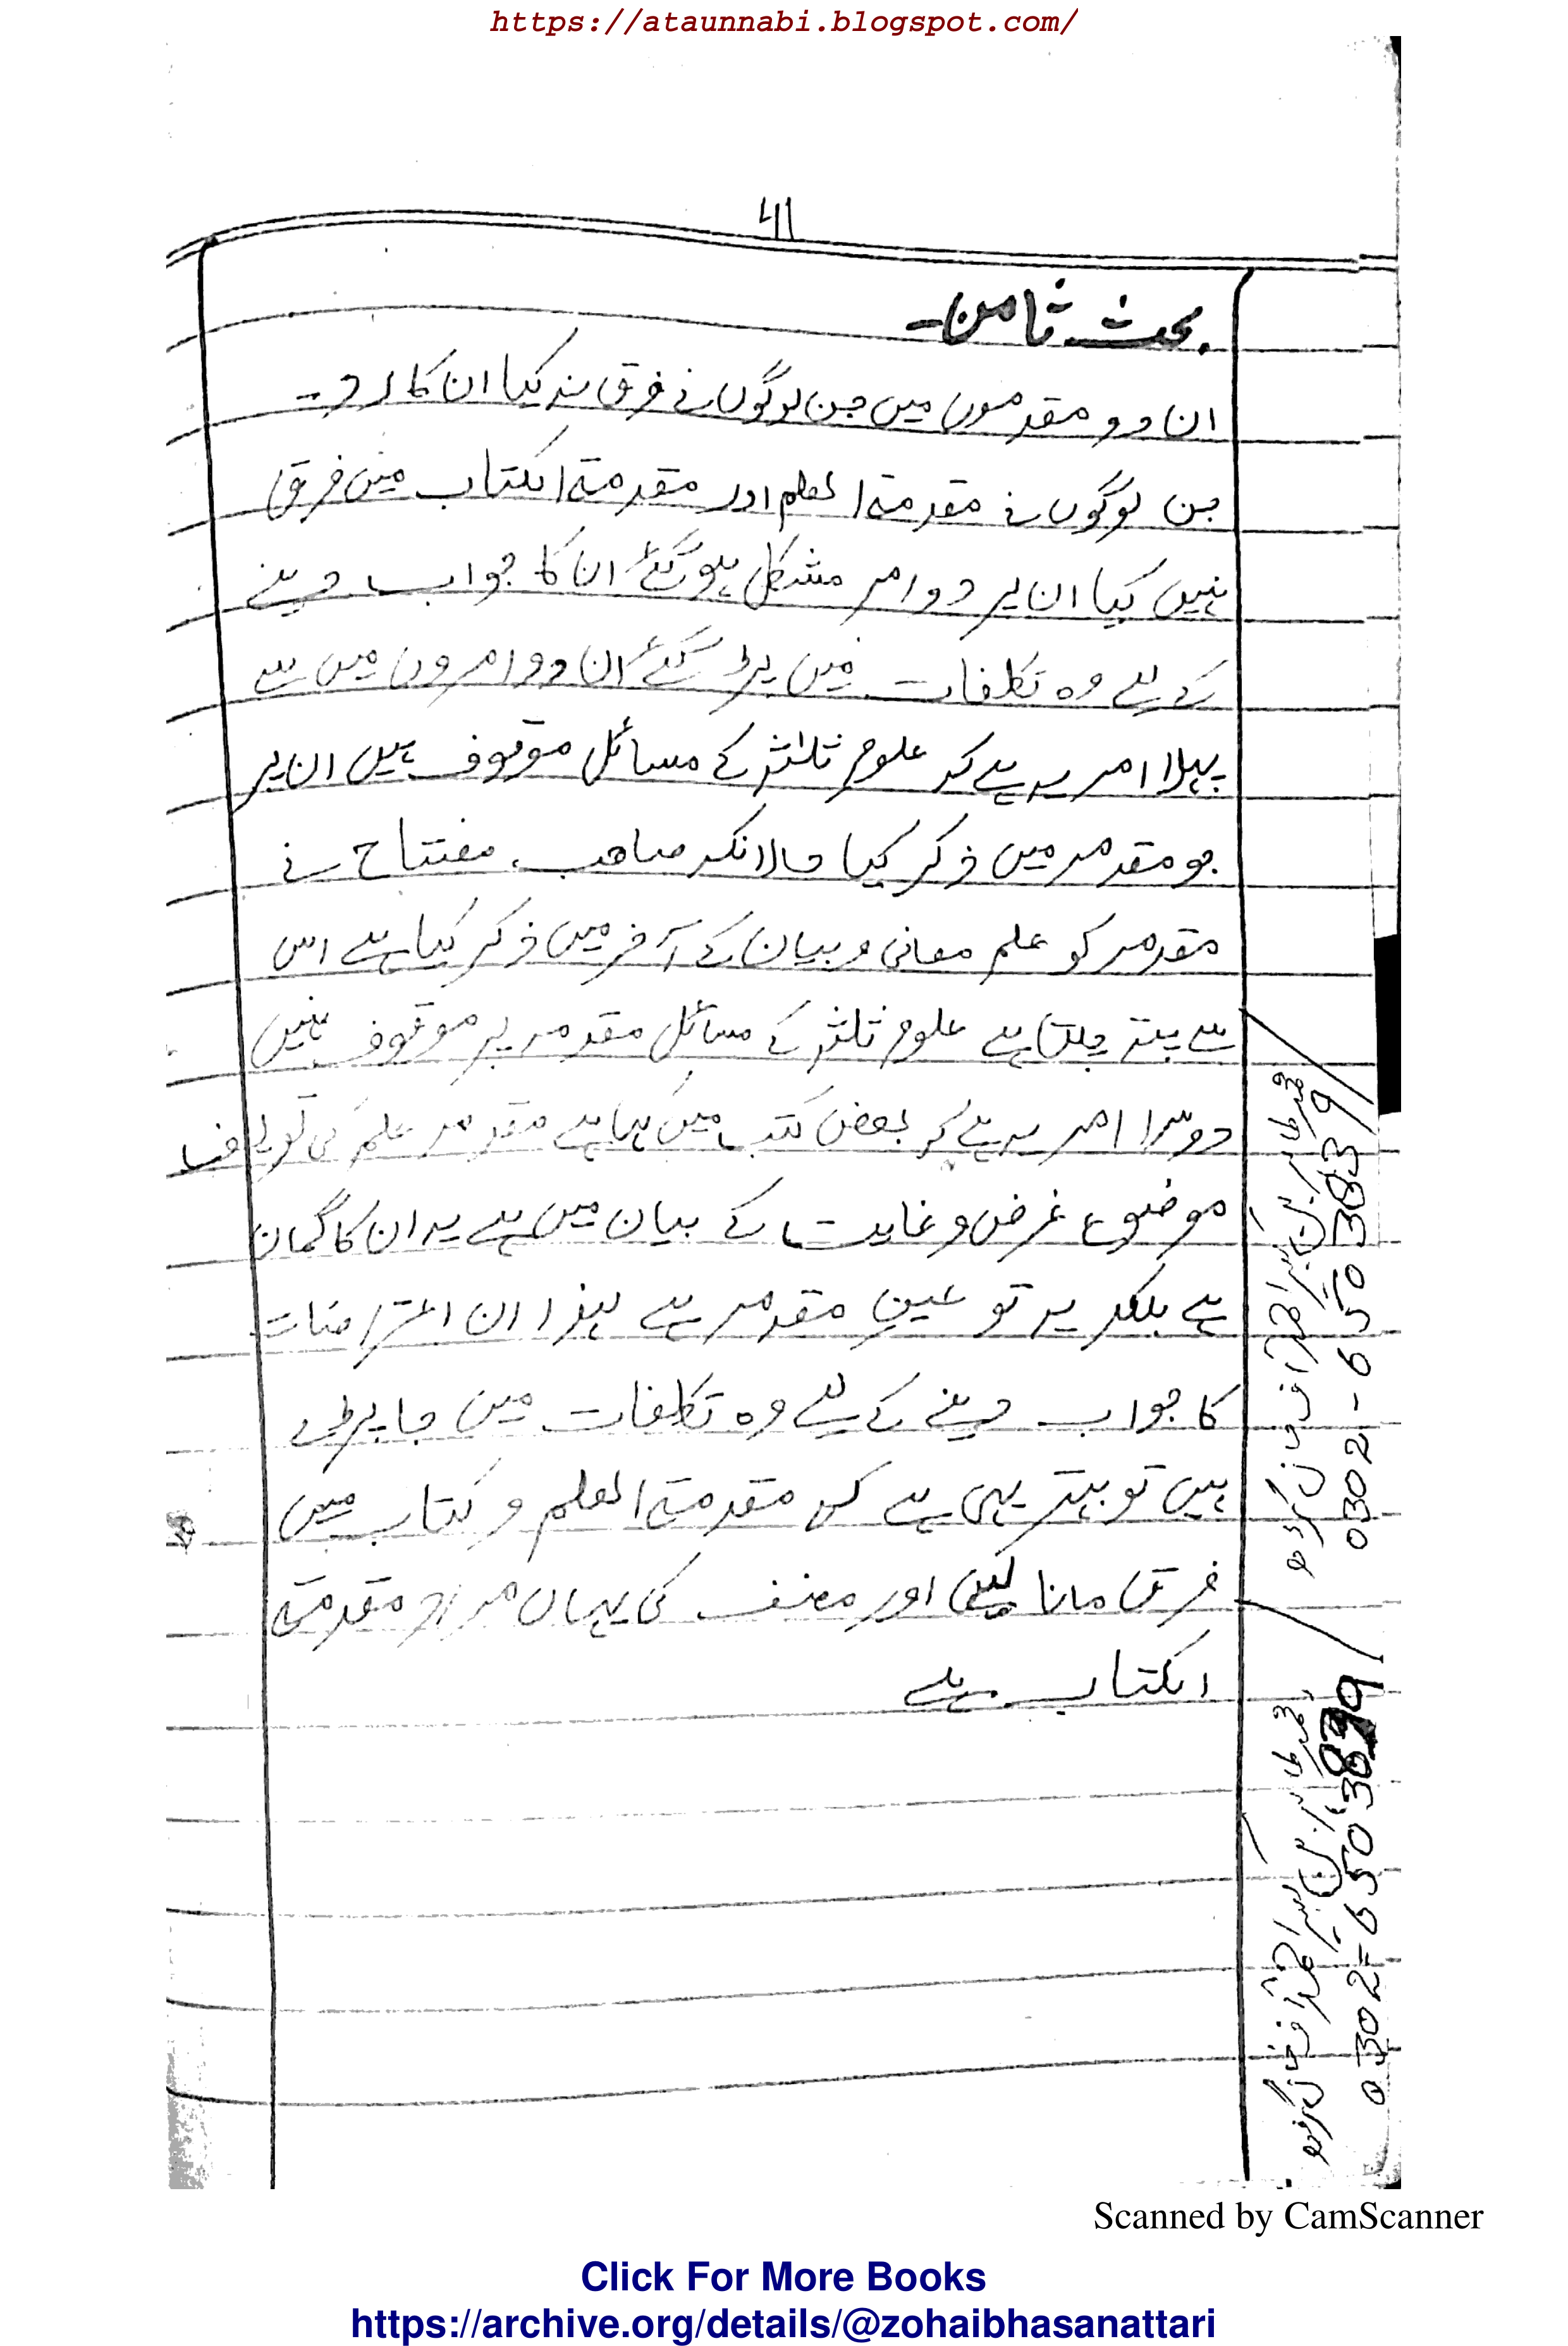 https://ataunnabi.blogspot.com/
41
بحث ثامن۔
ان دو مقدموں میں جن لوگوں نے فرق نہ کیا ان کا رد۔
جن لوگوں نے مقدمۃ العلم اور مقدمۃ الکتاب میں فرق
نہیں کیا ان پر دو امر مشکل ہو گئے ان کا جواب دینے
کے لیے وہ تکلفات میں پڑ گئے ان دو امروں میں سے
پہلا امر یہ ہے کہ علوم ثلاثہ کے مسائل موقوف ہیں ان پر
جو مقدمہ میں ذکر کیا حالانکہ صاحب مفتاح نے
مقدمہ کو علم معانی و بیان کے آخر میں ذکر کیا ہے اس
سے پتہ چلتا ہے علوم ثلثہ کے مسائل مقدمہ پر موقوف نہیں
دوسرا امر یہ ہے کہ بعض کتب میں کہا ہے مقدمہ علم کی تعریف
موضوع غرض و غایت کے بیان میں ہے یہ ان کا گمان
ہے بلکہ یہ تو عین مقدمہ ہے لہذا ان اعتراضات
کا جواب دینے کے لیے وہ تکلفات میں جا پڑے
ہیں تو بہتر یہی ہے کہ مقدمۃ العلم و کتاب میں
فرق مانا لیں اور مصنف کی یہاں مراد مقدمۃ
الکتاب ہے
محمد طاہر بن نبیر احمد آف خان گڑھ
0302-6503839
محمد طاہر بن نبیر احمد آف خان گڑھ
0302-6503839
Scanned by CamScanner
Click For More Books
https://archive.org/details/@zohaibhasanattari